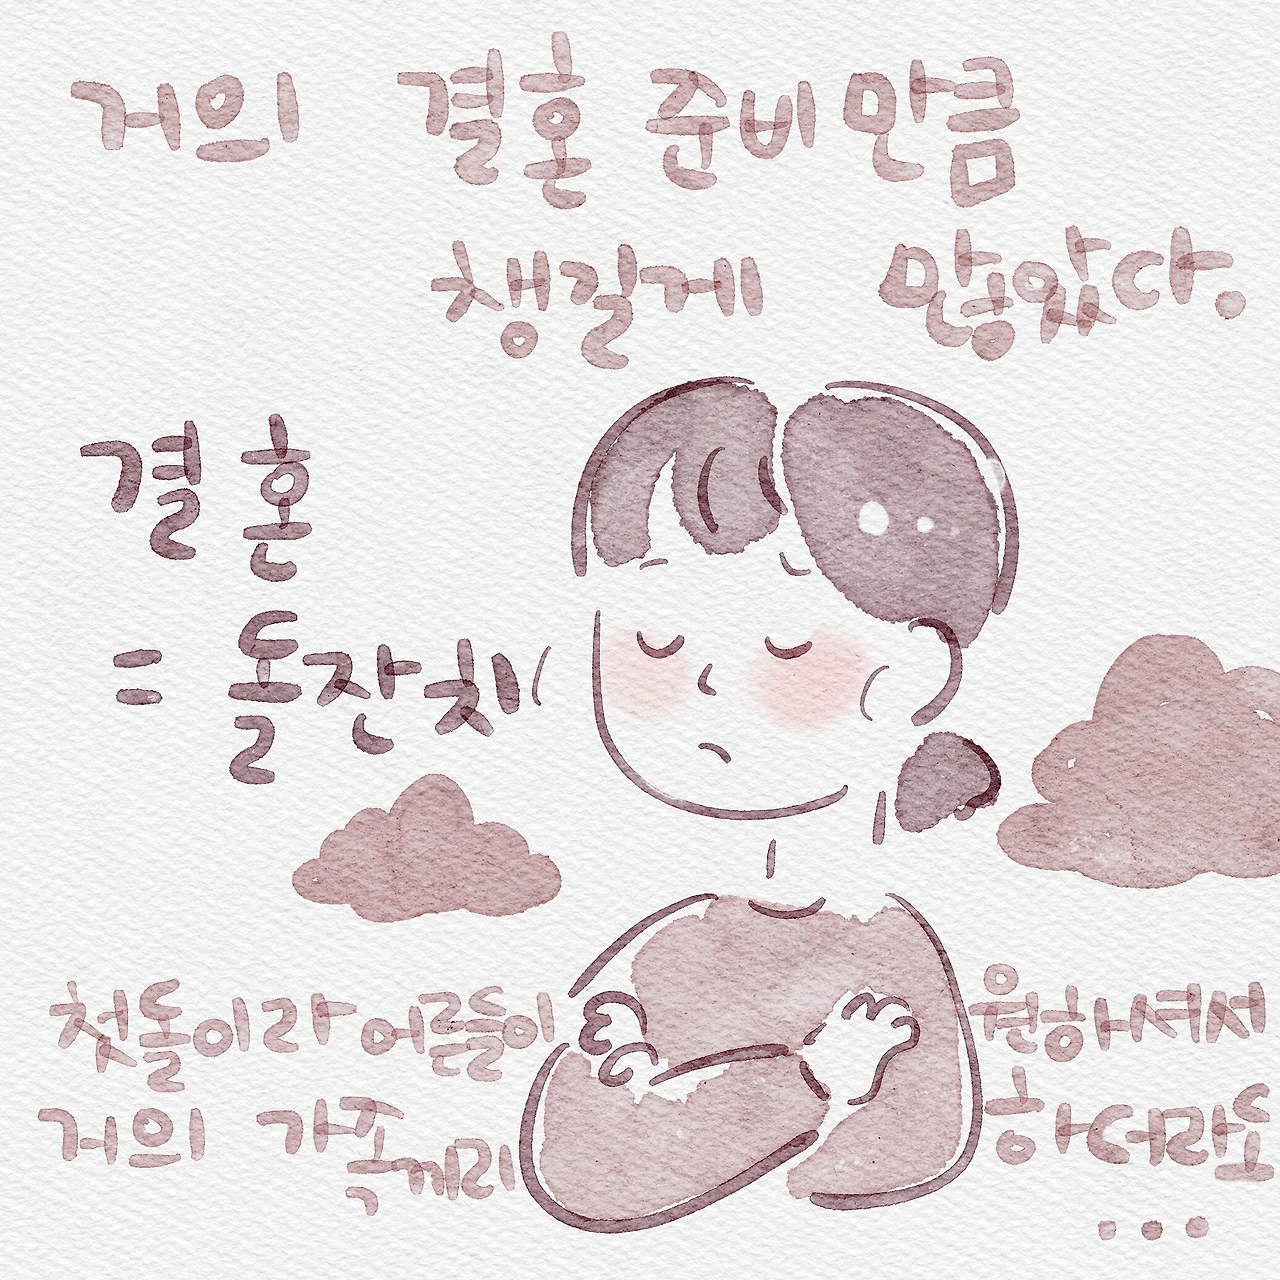 거의 결혼 준비만큼
챙길게 많았다.
결혼
= 돌잔치
첫돌이라 어른들이 원하셔서
거의 가족끼리 하더라도
...